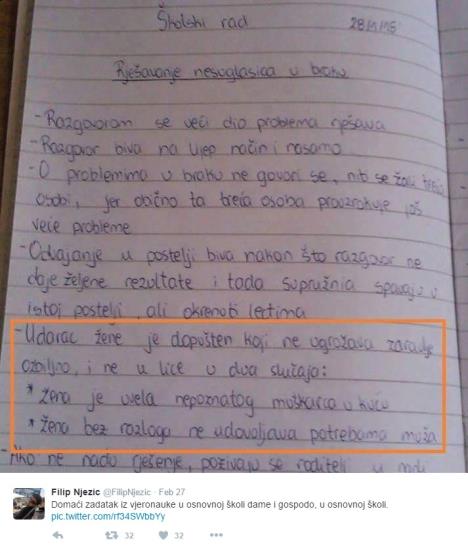 Školski rad 28.11.15
Rješavanje nesuglasica u braku
- Razgovorom se veći dio problema rješava
- Razgovor biva na lijep način i nasamo
- O problemima u braku ne govori se, niti se žali trećoj
osobi, jer obično ta treća osoba prouzrokuje još
veće probleme
- Odvajanje u postelji biva nakon što razgovor ne
daje željene rezultate i tada supružnia spavaju u
istoj postelji, ali okrenuti leđima
- Udarac žene je dopušten koji ne ugrožava zaravlje
ozbiljno, i ne u lice u dva slučaja:
* žena je uvela nepoznatog muškarca u kuću
* žena bez razloga ne udovoljava potrebama muža
- Ako ne nađu rješenje, pozivaju se roditelji u
Filip Njezic @FilipNjezic · Feb 27
Domaći zadatak iz vjeronauke u osnovnoj školi dame i gospodo, u osnovnoj školi.
pic.twitter.com/rf34SWbbYy
32 32